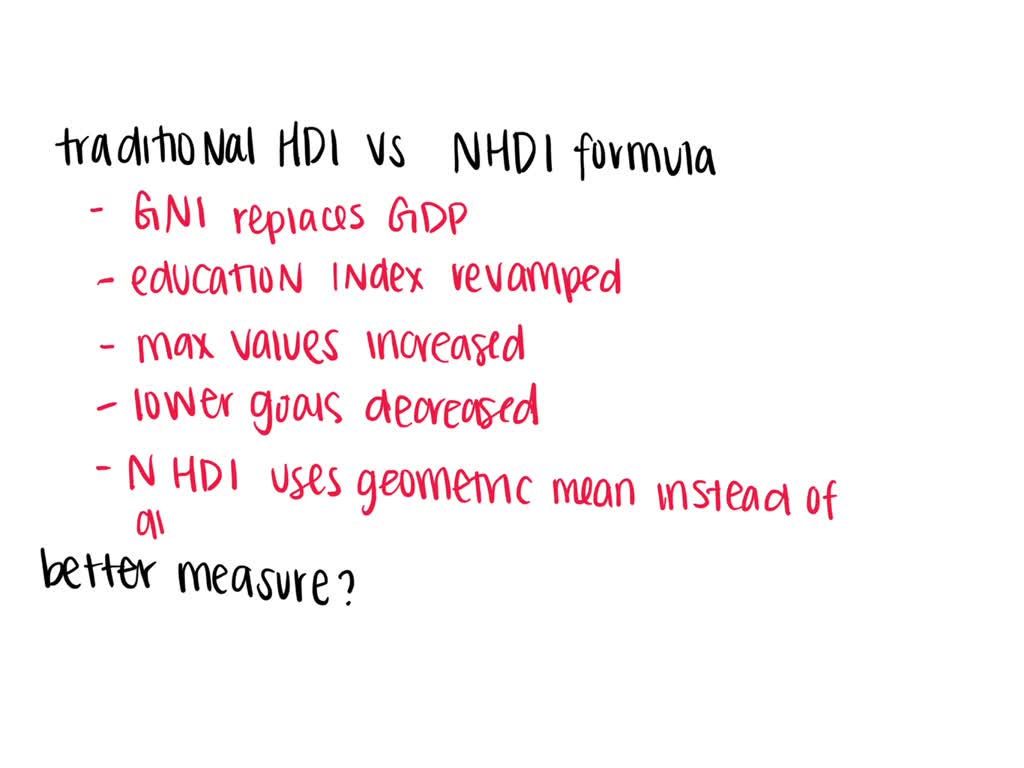 traditional HDI vs NHDI formula
- GNI replaces GDP
- education index revamped
- max values increased
- lower goals decreased
- NHDI uses geometric mean instead of
better measure?